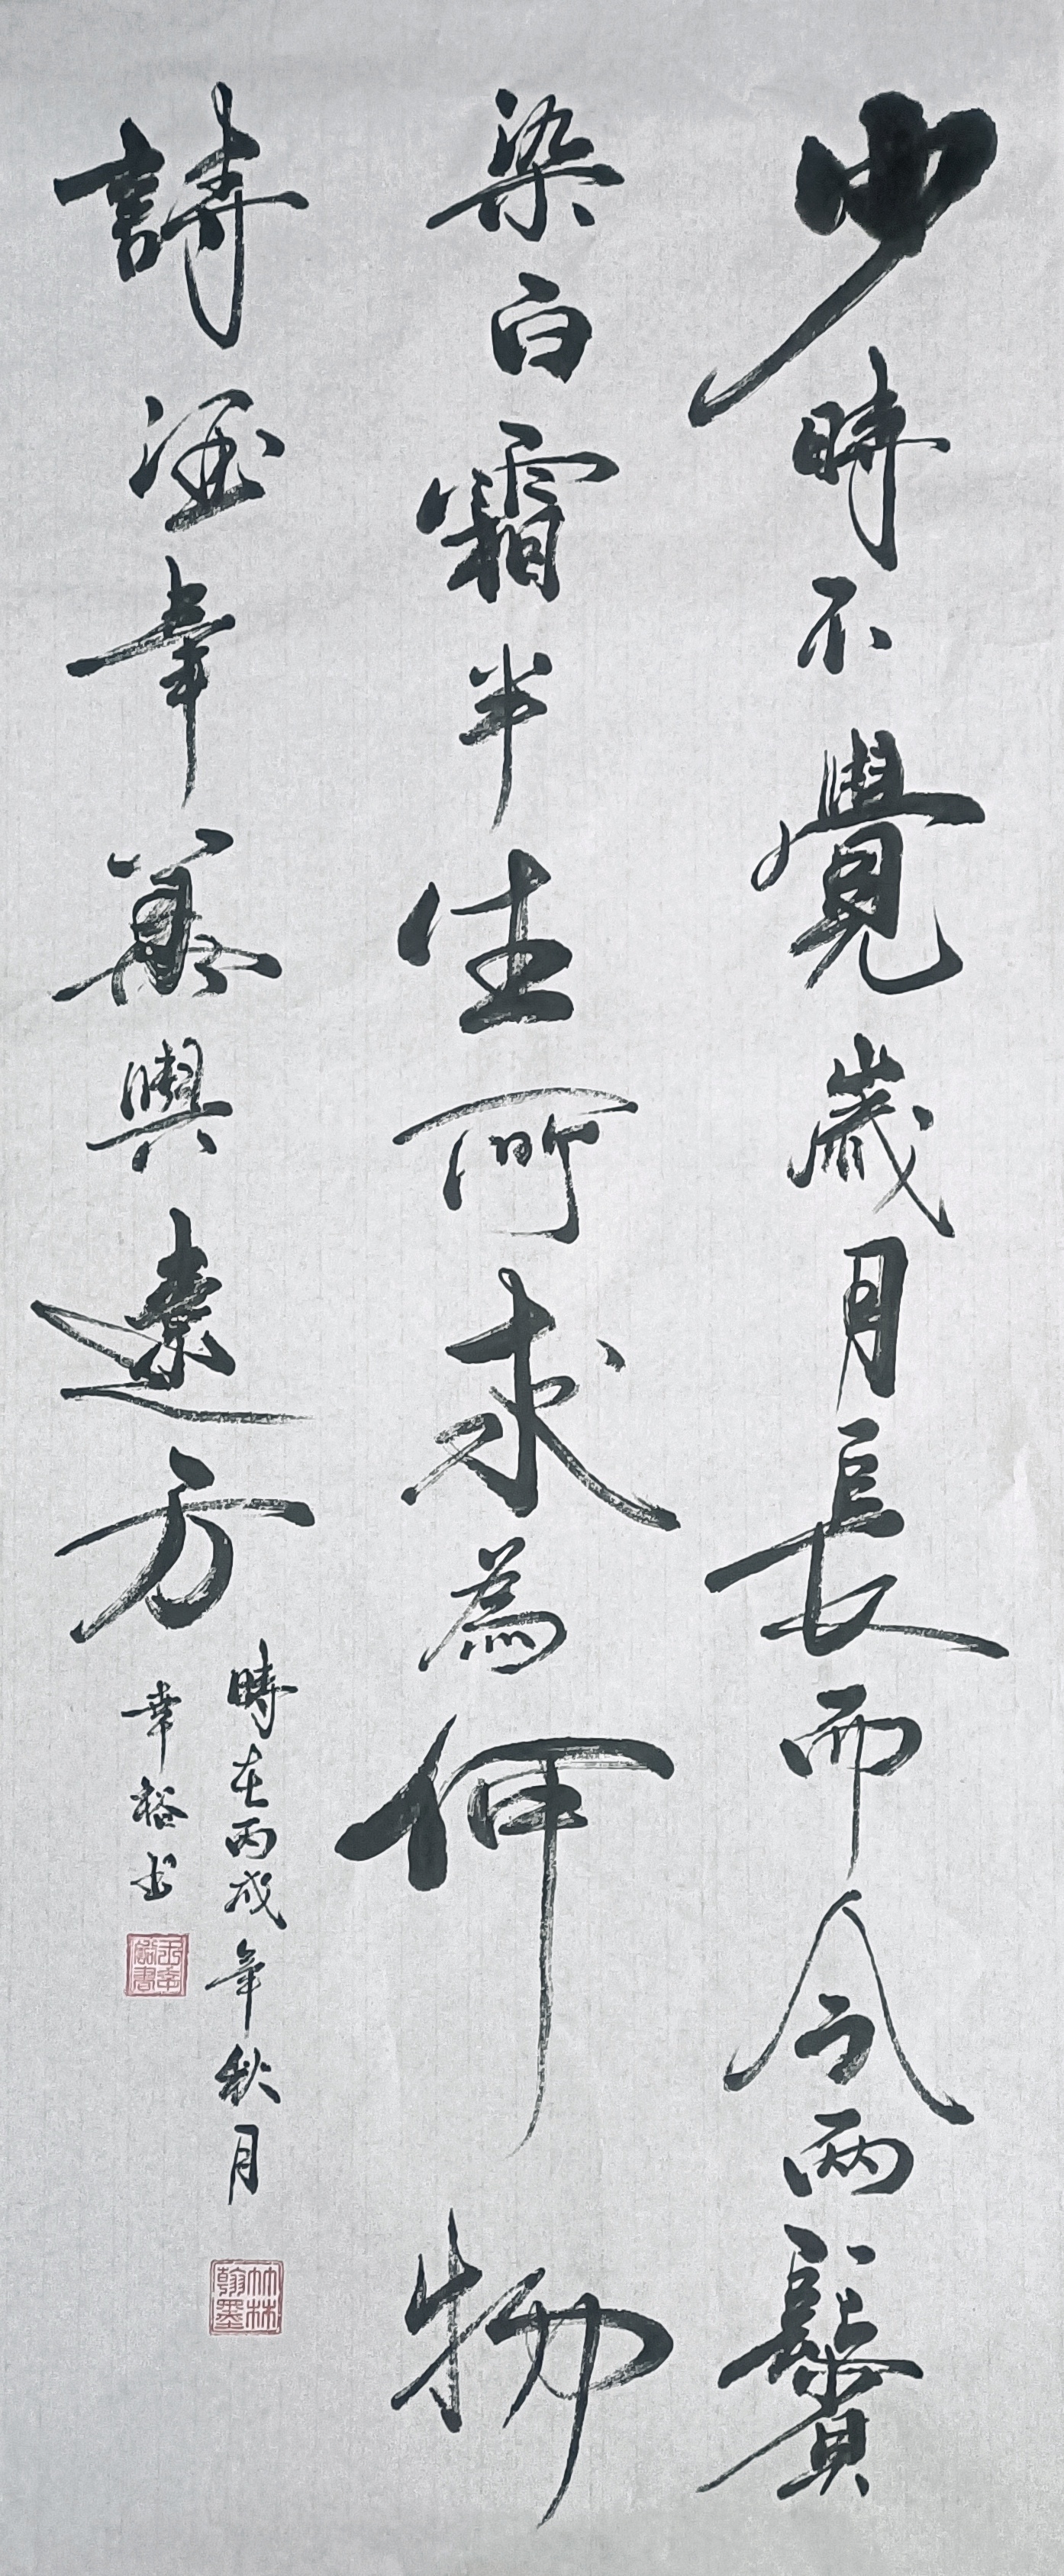 少時不覺歲月長而今兩鬢
染白霜半生所求為何物
詩酒年華與遠方
時在丙戌年秋月
幸裕书
竹林翰墨